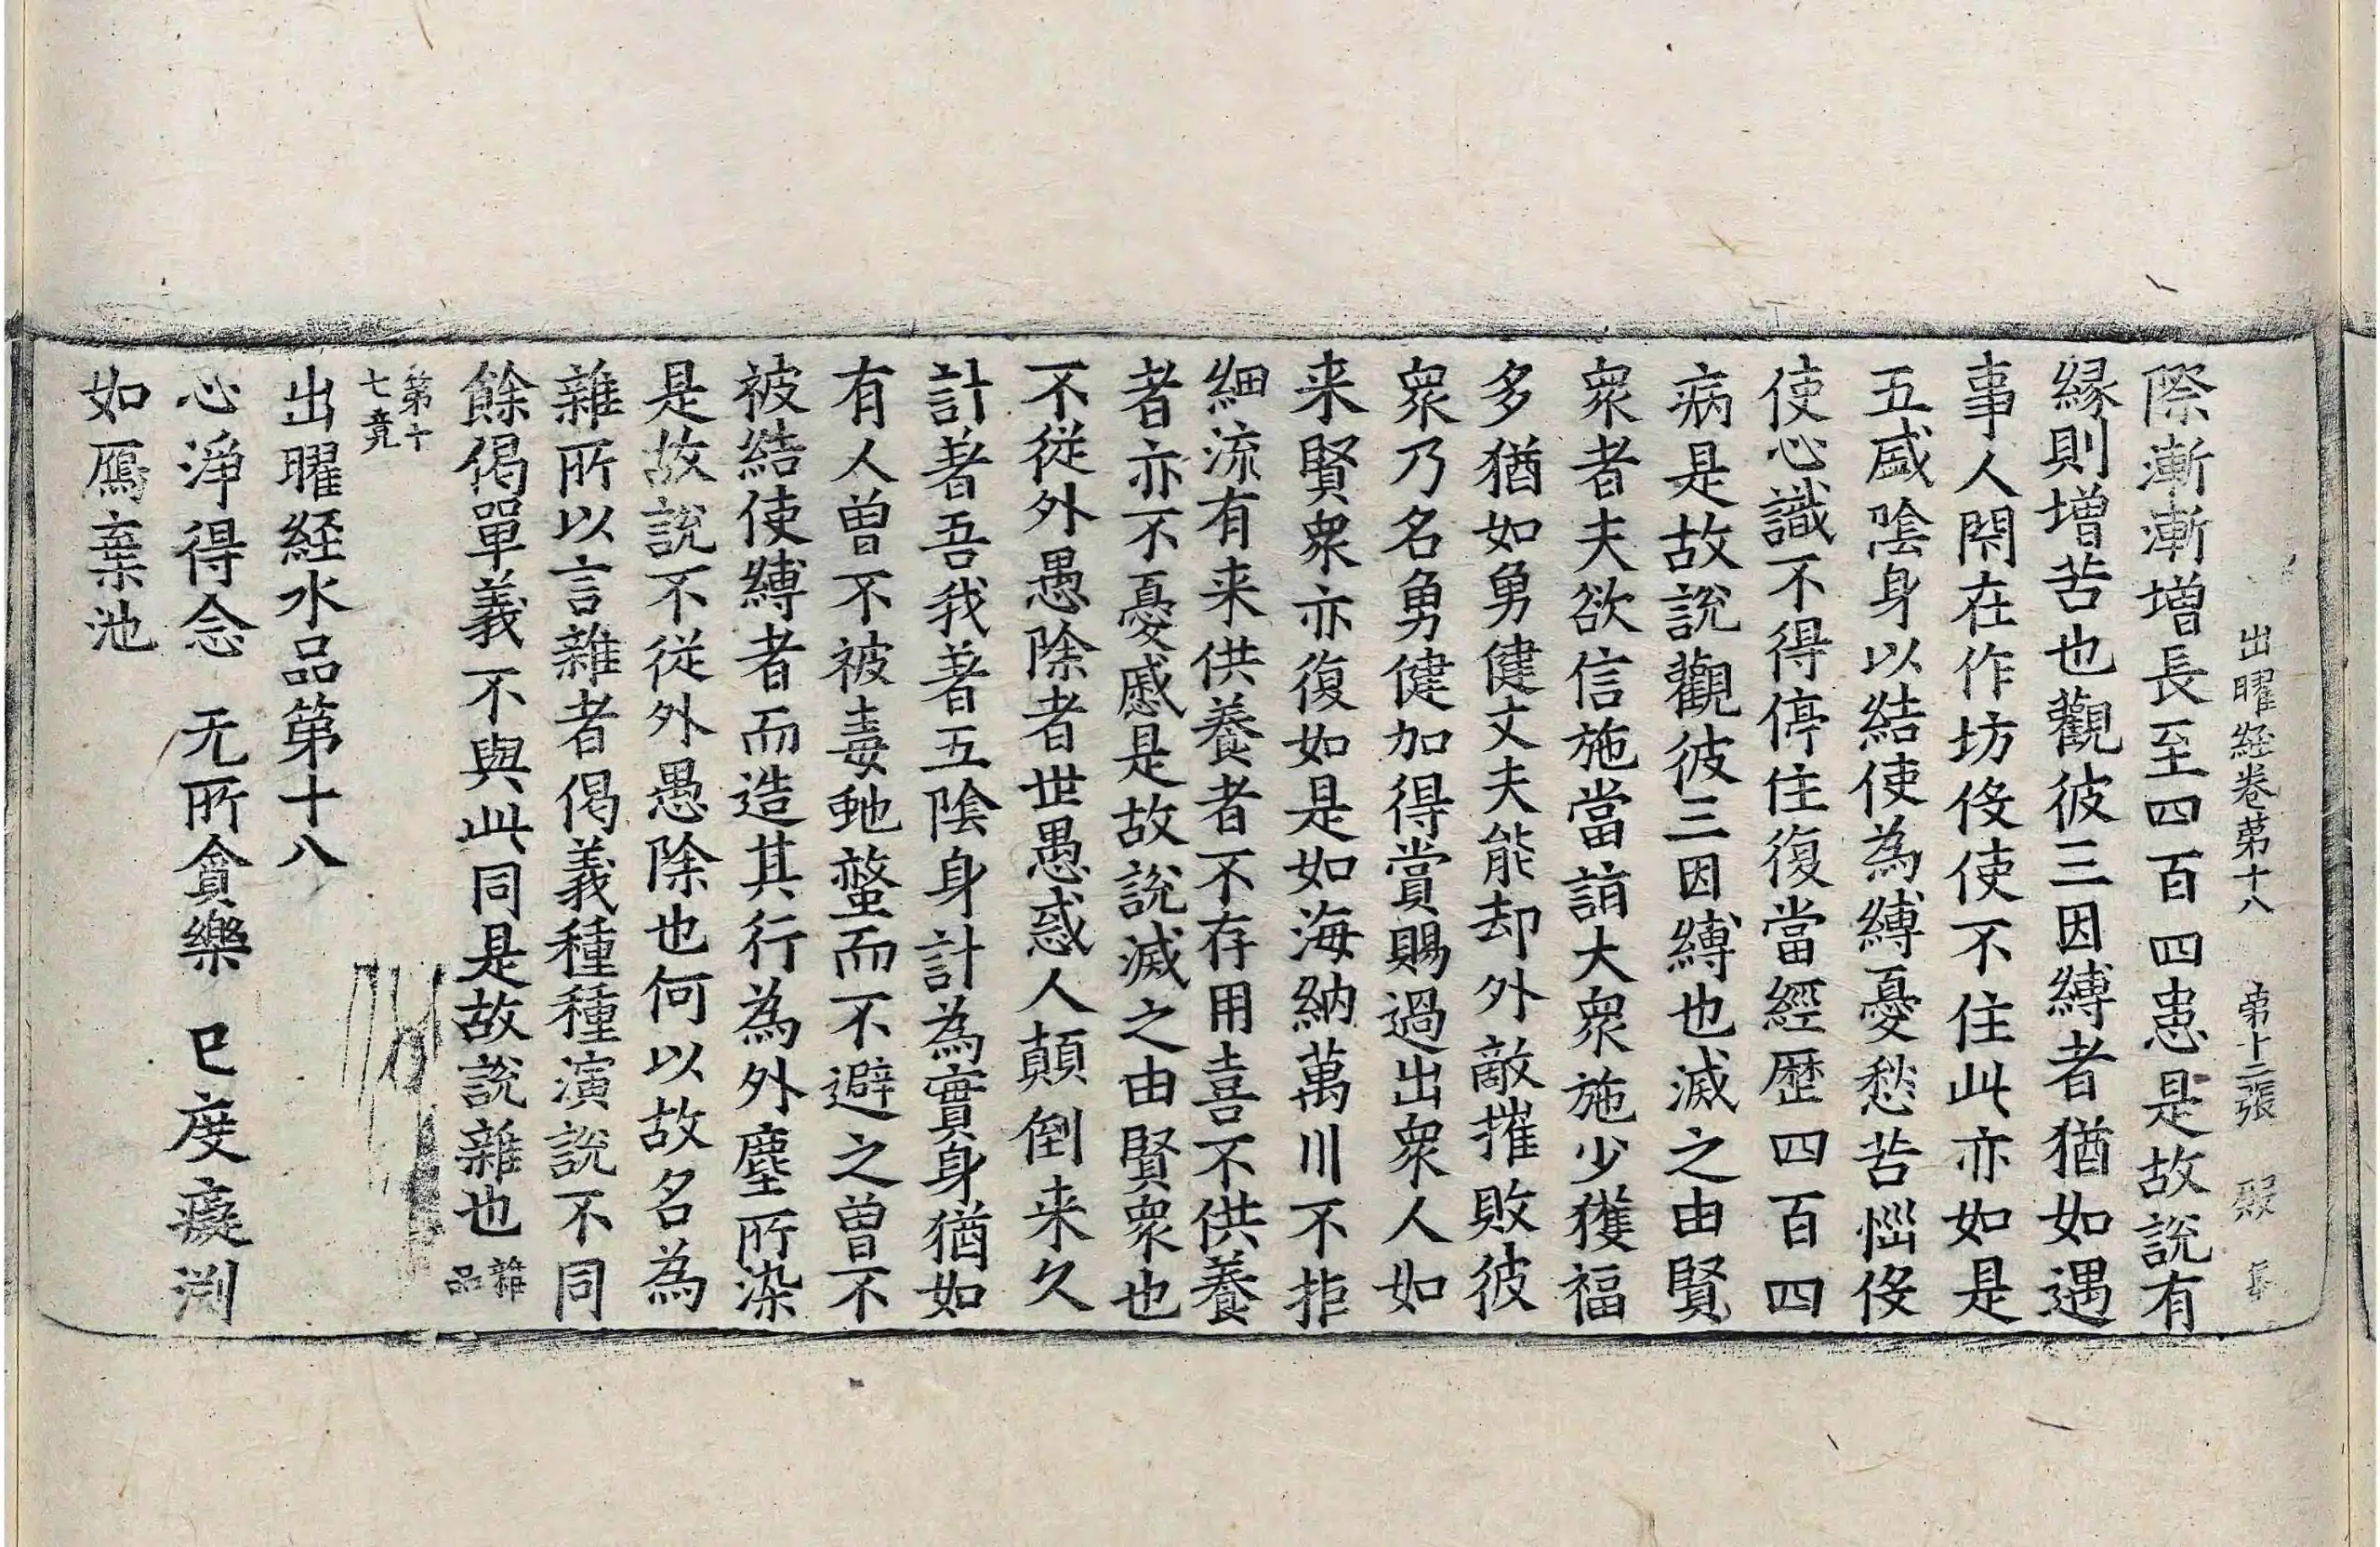 出曜経卷第十八 第十二張 殷
際漸漸增長至四百四患是故說有
縁則增苦也觀彼三因縛者猶如遇
事人閇在作坊伇使不住此亦如是
五盛陰身以結使為縛憂愁苦惱伇
使心識不得停住復當經歷四百四
病是故說觀彼三因縛也滅之由賢
衆者夫欲信施當詣大衆施少獲福
多猶如勇健丈夫能却外敵摧敗彼
衆乃名勇健加得賞賜過出衆人如
来賢衆亦復如是如海納萬川不拒
細流有来供養者不存用喜不供養
者亦不憂慼是故說滅之由賢衆也
不從外愚除者世愚惑人顛倒来久
計著吾我著五陰身計為實身猶如
有人曽不被毒虵螫而不避之曽不
被結使縛者而造其行為外塵所染
是故說不從外愚除也何以故名為
雜所以言雜者偈義種種演說不同
餘偈單義不與此同是故說雜也雜品
第十七竟
出曜経水品第十八
心淨得念 无所貪樂 已度癡渕
如鴈棄池